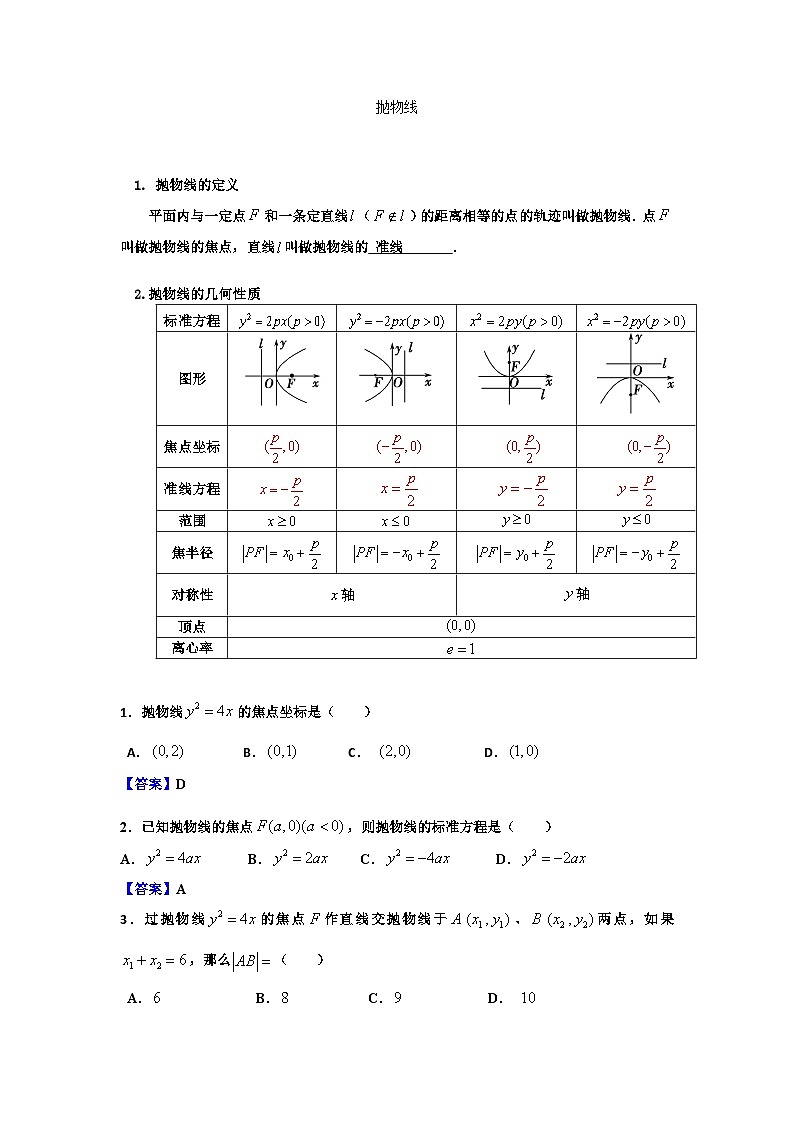 抛物线
1. 抛物线的定义
平面内与一定点 F 和一条定直线 l（ F ∉ l ）的距离相等的点的轨迹叫做抛物线. 点 F
叫做抛物线的焦点, 直线 l 叫做抛物线的 准线 .
2. 抛物线的几何性质
标准方程 y² = 2px(p > 0) y² = −2px(p > 0) x² = 2py(p > 0) x² = −2py(p > 0)
图形 l y O F x y l F O x y F O x l y O l x F
焦点坐标 (p/2, 0) (−p/2, 0) (0, p/2) (0, −p/2)
准线方程 x = −p/2 x = p/2 y = −p/2 y = p/2
范围 x ≥ 0 x ≤ 0 y ≥ 0 y ≤ 0
焦半径 |PF| = x₀ + p/2 |PF| = −x₀ + p/2 |PF| = y₀ + p/2 |PF| = −y₀ + p/2
对称性 x 轴 y 轴
顶点 (0, 0)
离心率 e = 1
1. 抛物线 y² = 4x 的焦点坐标是（ ）
A. (0, 2) B. (0,1) C. (2,0) D. (1,0)
【答案】D
2. 已知抛物线的焦点 F(a,0)(a < 0), 则抛物线的标准方程是（ ）
A. y² = 4ax B. y² = 2ax C. y² = −4ax D. y² = −2ax
【答案】A
3. 过抛物线 y² = 4x 的焦点 F 作直线交抛物线于 A (x₁, y₁) 、 B (x₂, y₂) 两点, 如果
x₁ + x₂ = 6, 那么 |AB| = （ ）
A. 6 B. 8 C. 9 D. 10